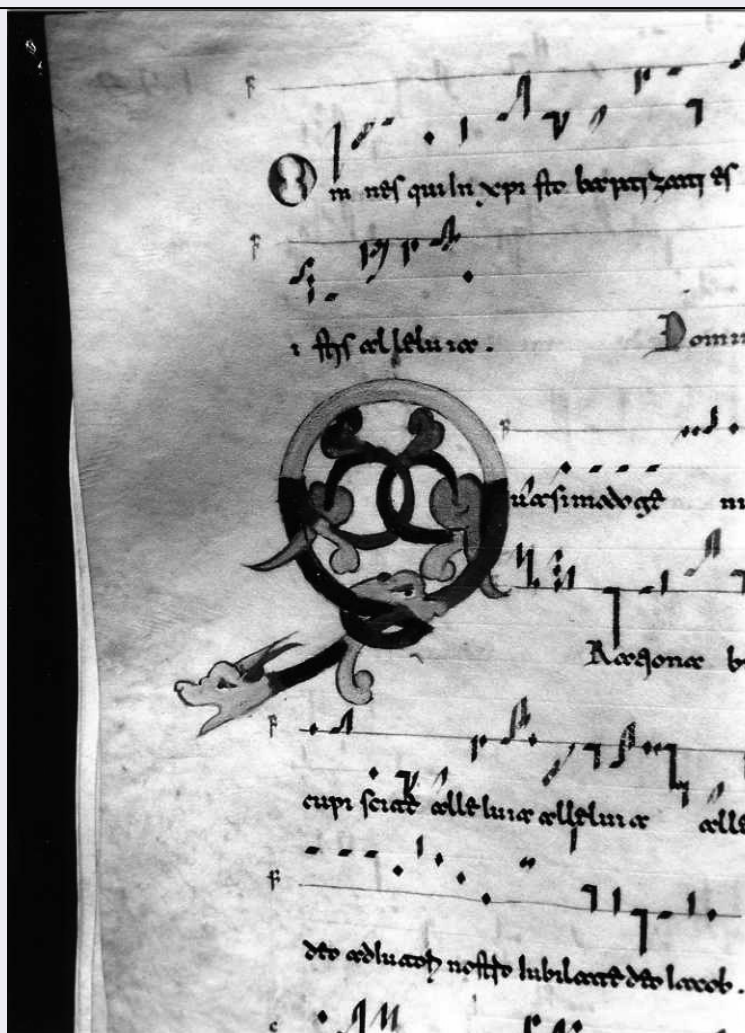 Om nes qui In xpi sto bap ti zati es
i stis al leluia. Domin
Quasi modo ge ni
Rationa b
cupi scite alleluia alleluia alle
deo adiutori nostro Iubilate deo Iacob.